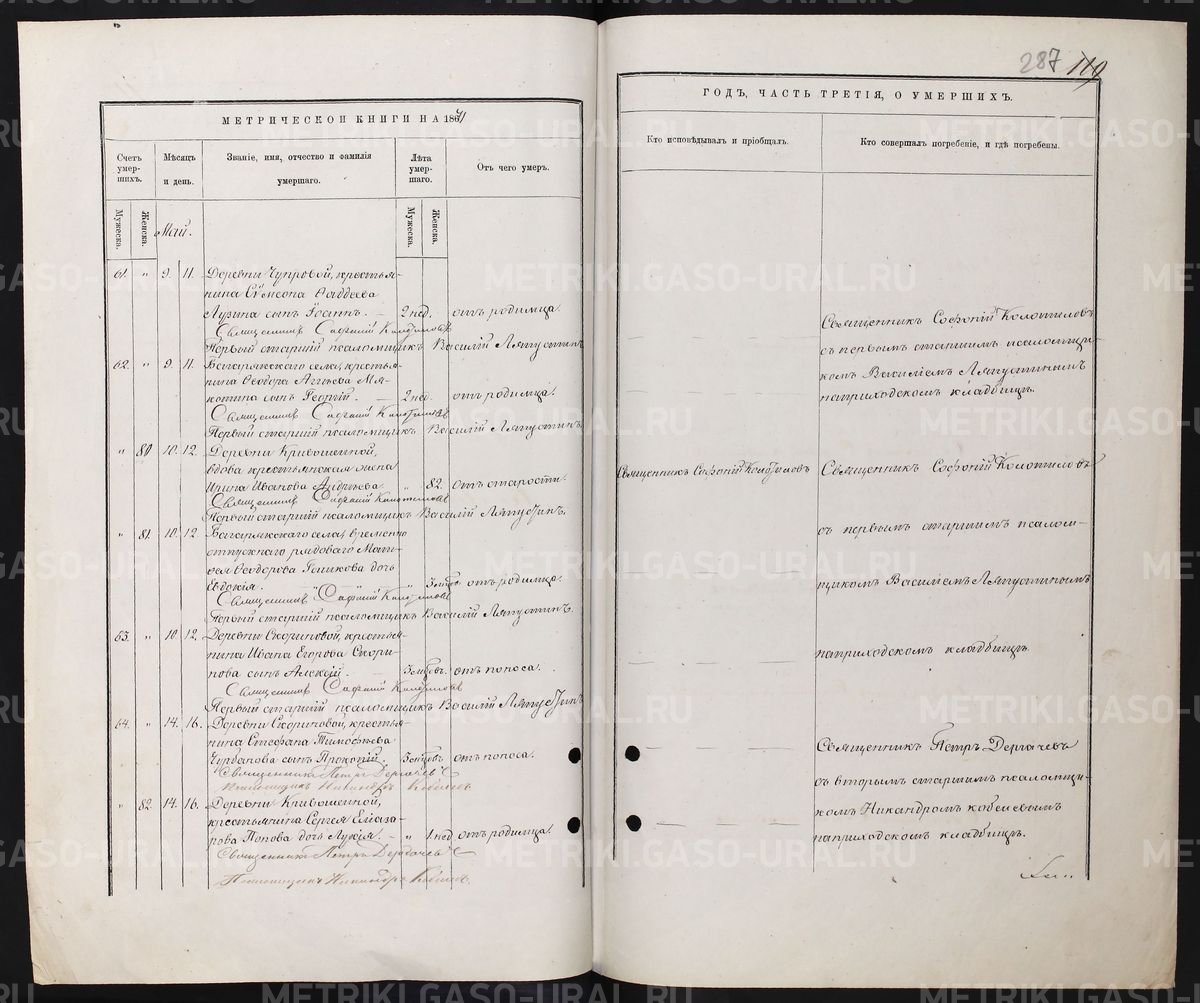 287 119
МЕТРИЧЕСКОЙ КНИГИ НА 1871
Счетъ умер-шихъ.
Мужеска.
Женска.
Мѣсяцъ и день.
Званіе, имя, отчество и фамилія умершаго.
Лѣта умер-шаго.
Мужеска.
Женска.
Отъ чего умеръ.
Май.
61. " 9. 11. Деревни Чупровой, крестья-
нина Сѵмеона Ѳаддеева
Лузина сынъ Іоаннъ. — 2 нед. отъ родимца.
Священникъ Софоній Колотиловъ
Первый старшій псаломщикъ Василій Ляпустинъ
62. " 9. 11. Багарякскаго села, крестья-
нина Ѳеодора Аггѣева Мя-
котина сынъ Георгій. — 2 нед. отъ родимца.
Священникъ Софоній Колотиловъ
Первый старшій псаломщикъ Василій Ляпустинъ.
" 80 10. 12. Деревни Кривошеиной,
вдова крестьянская жена
Ирина Иванова Андрѣева " 82. отъ старости.
Священникъ Софоній Колотиловъ
Первый старшій псаломщикъ Василій Ляпустинъ.
" 81. 10. 12. Багарякскаго села, временно
отпускнаго рядоваго Мат-
ѳея Ѳеодорова дочь
Евдокія. — " — " отъ родимца.
Священникъ Софоній Колотиловъ
Первый старшій псаломщикъ Василій Ляпустинъ.
63. " 10. 12. Деревни Скориновой, крестья-
нина Ивана Егорова Скори-
нова сынъ Алексій. — 3 мѣсев. отъ поноса.
Священникъ Софоній Колотиловъ
Первый старшій псаломщикъ Василій Ляпустинъ
64. " 14. 16. Деревни Скориновой, крестья-
нина Стефана Тимофѣева
Чурбанова сынъ Прокопій. отъ поноса.
Священникъ Петръ Дергачевъ
Псаломщикъ Никандръ Кобелевъ
" 82. 14. 16. Деревни Кривошеиной,
крестьянина Сергея Елиаза-
рова Попова дочь Лукія. — " 1 нед отъ родимца.
Священникъ Петръ Дергачевъ
Псаломщикъ Никандръ Кобелевъ
ГОДЪ, ЧАСТЬ ТРЕТІЯ, О УМЕРШИХЪ.
Кто исповѣдывалъ и пріобщалъ.
Кто совершалъ погребеніе, и гдѣ погребены.
Священникъ Софоній Колотиловъ
съ первымъ старшимъ псаломщи-
комъ Василіемъ Ляпустинымъ
на приходскомъ кладбищѣ.
Священникъ Софоній Колотиловъ
Священникъ Софоній Колотиловъ
съ первымъ старшимъ псалом-
щикомъ Василіемъ Ляпустинымъ
на приходскомъ кладбищѣ.
Священникъ Петръ Дергачевъ
съ вторымъ старшимъ псаломщи-
комъ Никандромъ Кобелевымъ
на приходскомъ кладбищѣ.
METRIKI.GASO-URAL.RU